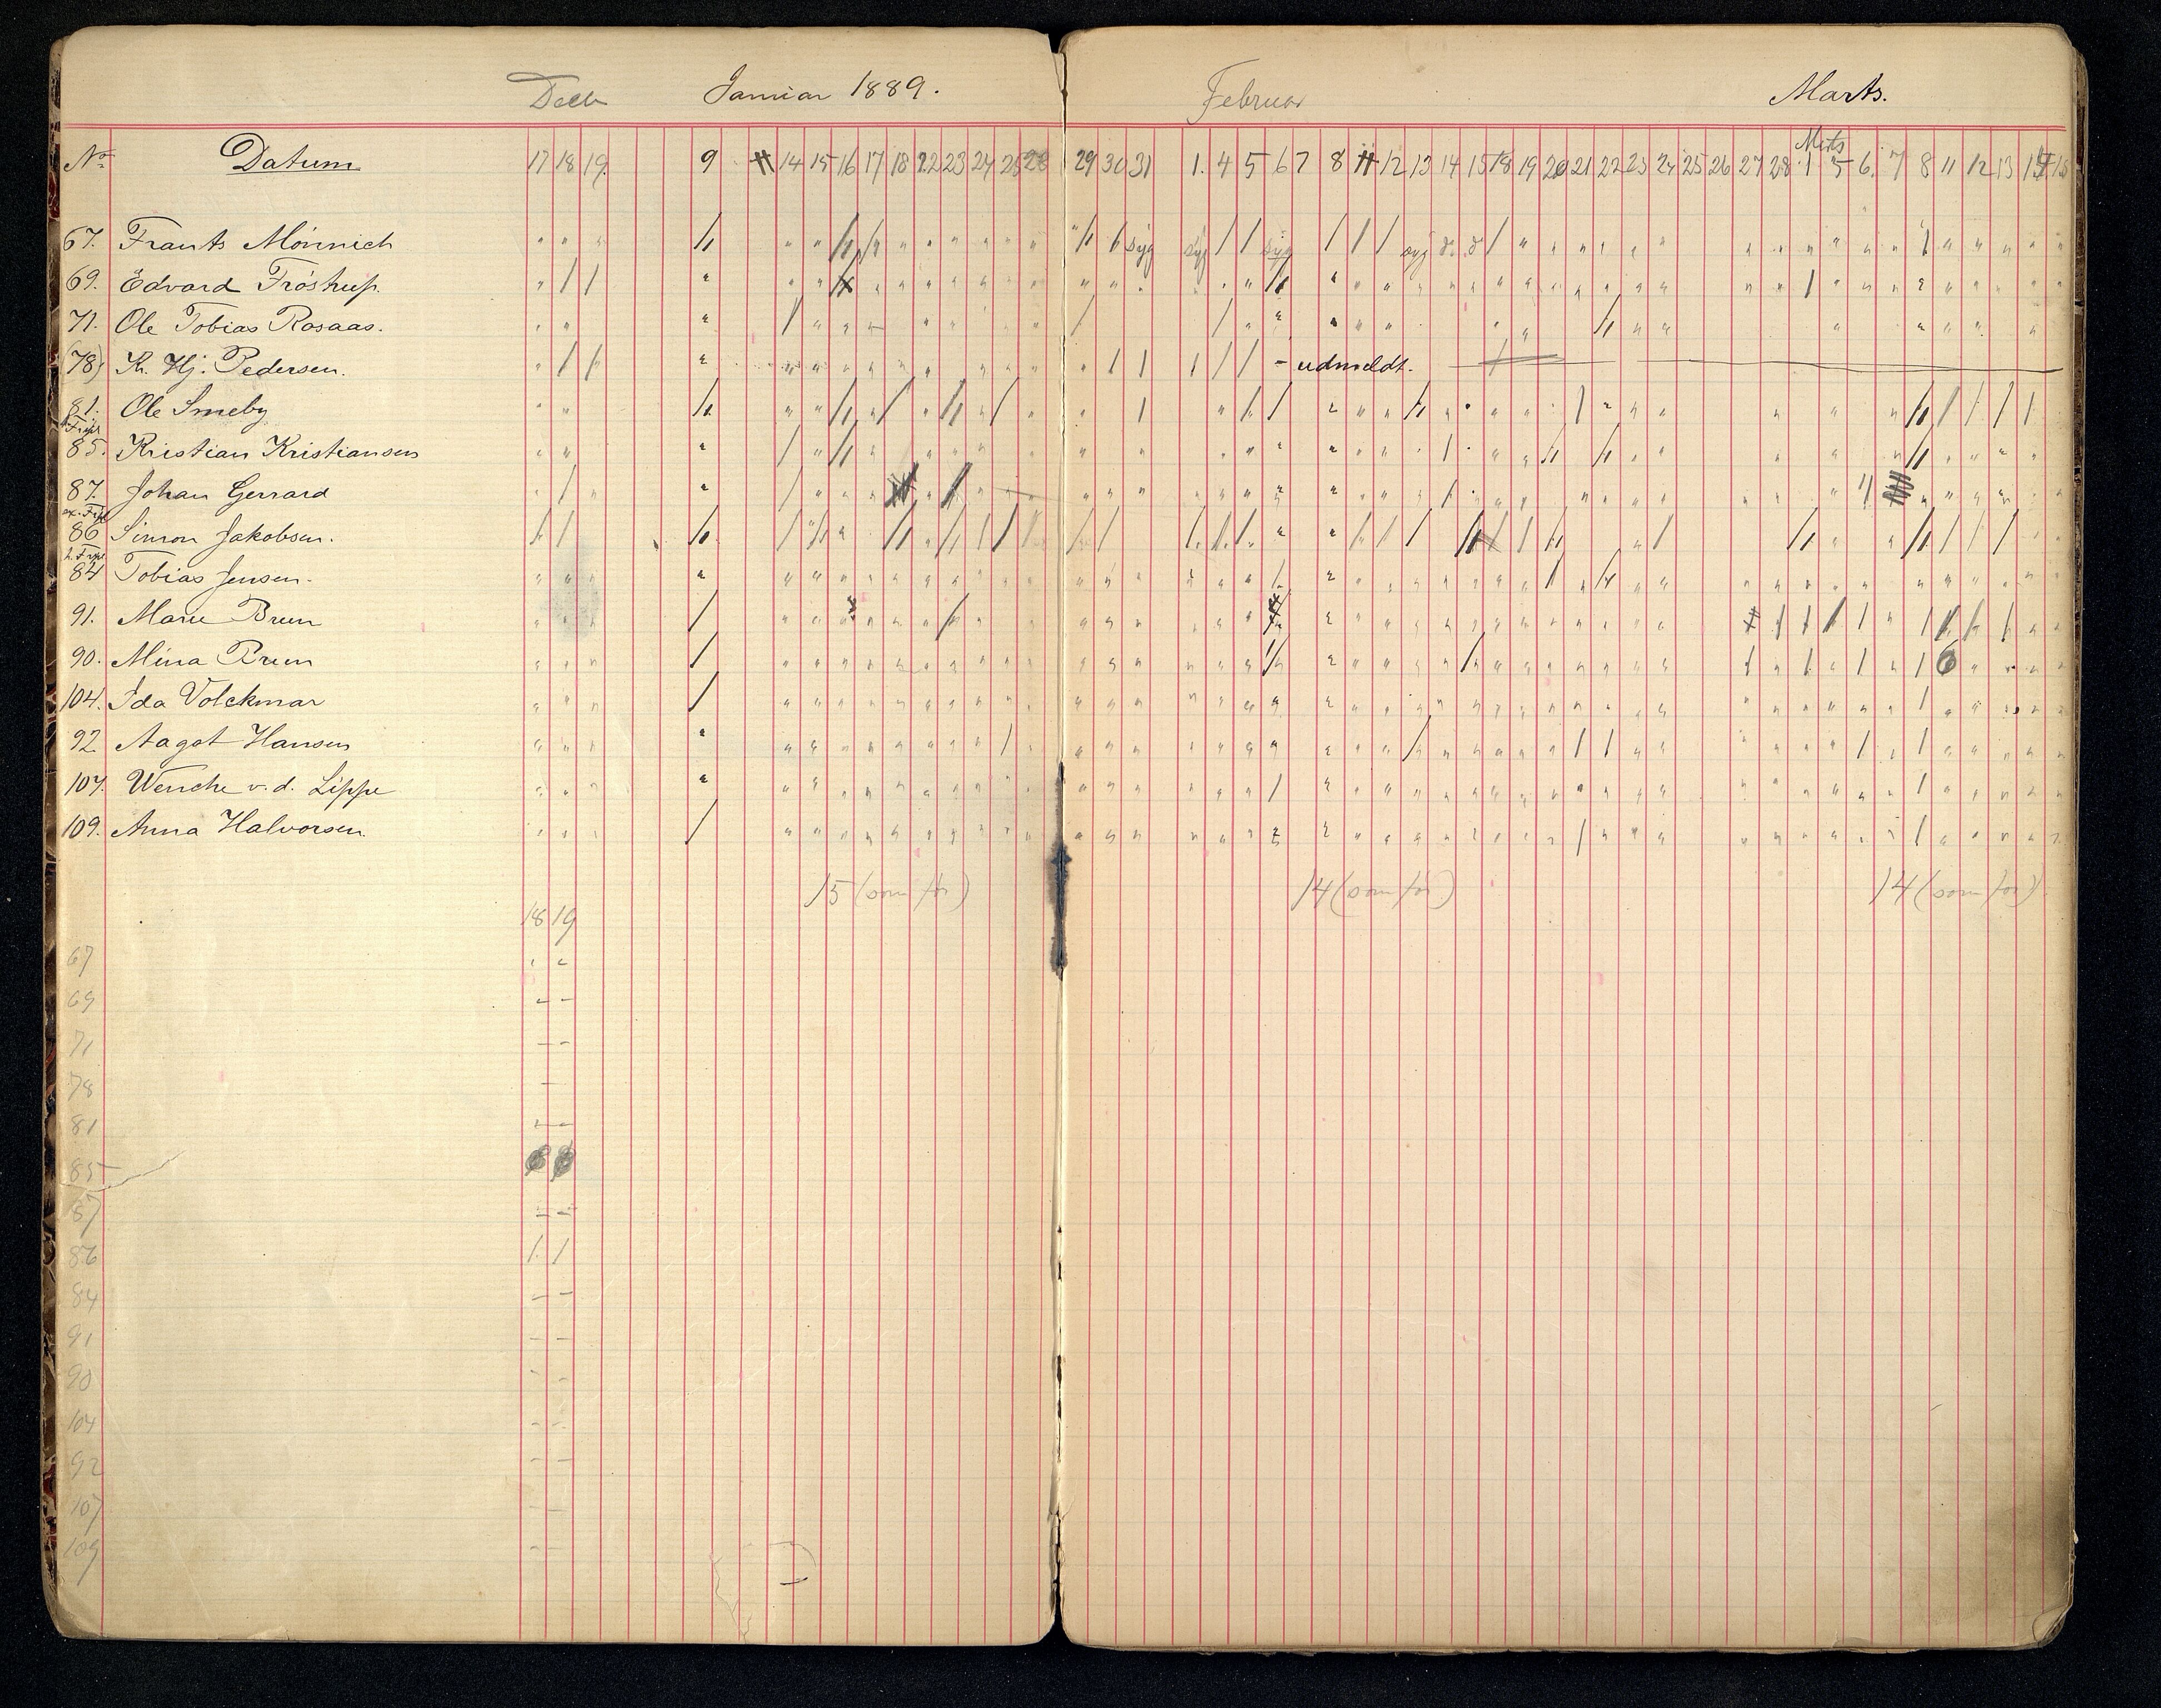 Januar 1889. Februar Marts.
No Datum 17 18 19. 9 14 15 16 17 18 22 23 24 25 28 29 30 31 1. 4 5 6 7 8 11 12 13 14 15 18 19 20 21 22 23 24 25 26 27 28 1 5 6. 7 8 11 12 13 15
67. Frants Mönnich syg syg syg syg d. d
69. Edvard Fröstrup.
71. Ole Tobias Rosaas.
(78) K. Hj. Pedersen. - udmeldt.
81. Ole Smeby
85. Kristian Kristiansen
87. Johan Gerrard
86 Simon Jakobsen.
84 Tobias Jensen.
91. Marie Bruun
90. Mina Bruun
104. Ida Volckmar
92. Aagot Hansen
107. Wenche v. d. Lippe
109. Anna Halvorsen.
15 (som før) 14 (som før) 14 (som før)
18 19
67
69
71
78
81
85
87
86
84
91
90
104
92
107
109